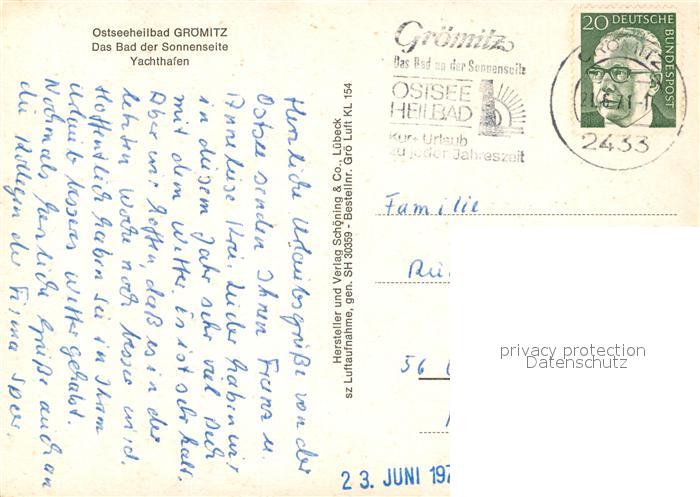 Ostseeheilbad GRÖMITZ
Das Bad der Sonnenseite
Yachthafen
Herzliche Urlaubsgrüße von der
Ostsee senden Ihnen Franz u.
Anneliese Leider haben wir
in diesem Jahr sehr viel Pech
mit dem Wetter. Es ist sehr kalt.
Aber wir hoffen, daß es in der
letzten Woche noch besser wird.
Hoffentlich haben Sie in Ihrem
Urlaub besseres Wetter gehabt.
Nochmals herzliche Grüße auch an
die Kollegen der Firma
Hersteller und Verlag Schöning & Co., Lübeck
sz Luftaufnahme, gen. SH 30359 - Bestellnr. Grö Luft KL 154
Grömitz
Das Bad an der Sonnenseite
OSTSEE
HEILBAD
Kur + Urlaub
zu jeder Jahreszeit
20 DEUTSCHE
BUNDESPOST
GRÖMITZ
2433
Familie
56
privacy protection
Datenschutz
23. JUNI 197